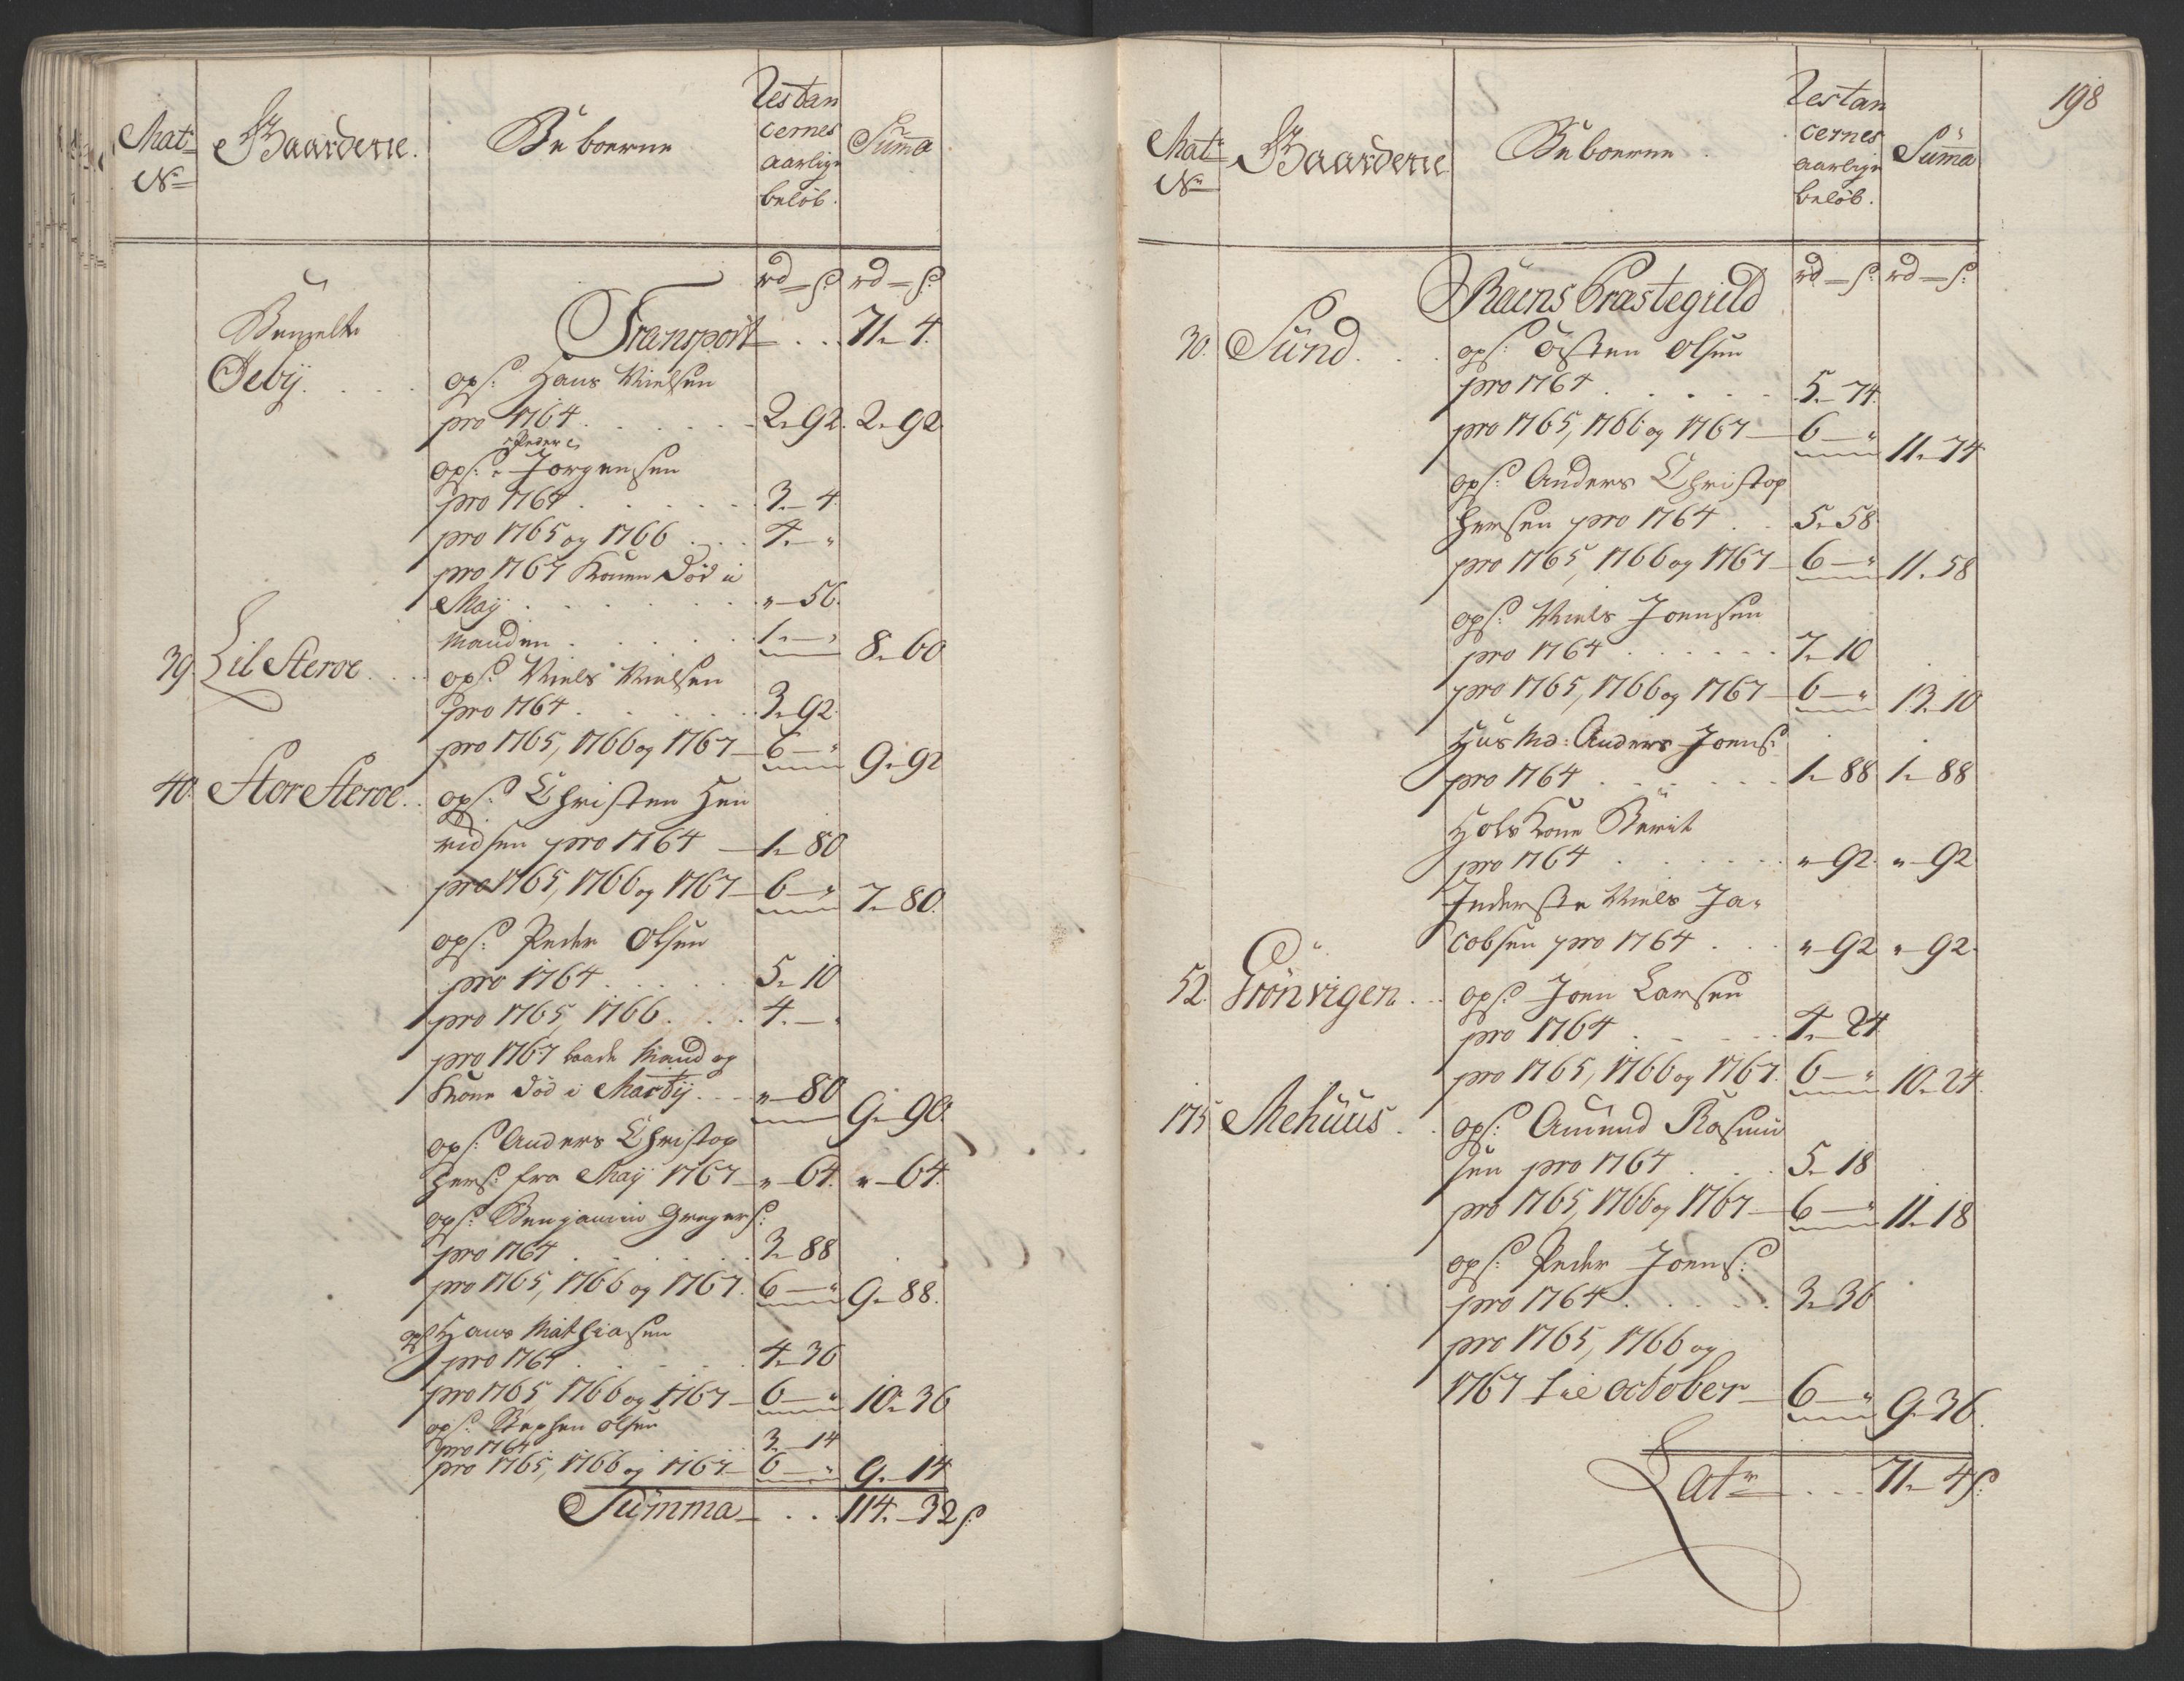 Mat:
No
Gaardene.
Beboerne
Restan
cernes
aarlige
beløb.
Summa
rd — s. rd — s.
Transport . . 71. 4.
Bemelte
Oeby. . . . ops: Hans Nielsen
pro 1764 . . . . . 2. 92. 2. 92.
Peder
ops: Jörgensen
pro 1764 . . . . . 3. 4.
pro 1765 og 1766 . . . 4. — "
pro 1767 Konen död i
Maÿ . . . . . . " — 56.
Manden . . . . . 1. — " 8. 60
39. Lil Steroe . . . ops: Niels Nielsen
pro 1764 . . . . . 3. 92.
pro 1765, 1766 og 1767 — 6 — " 9. 92
40. Stor Steroe . . ops: Christen Hen
ricksen pro 1764 — 1. 80
pro 1765, 1766 og 1767 — 6 — " 7. 80.
ops: Peder Olsen
pro 1764 . . . . . 5. 10
pro 1765, 1766 . . . 4. — "
pro 1767 baade Mand og
Kone död i Martÿ . . . " — 80 9. 90.
ops: Anders Christop
hers: fra Maÿ 1767 — " — 64. " — 64.
ops: Benjamin Gregers:
pro 1764 . . . . . 3. 88
pro 1765, 1766 og 1767. 6 — " 9. 88.
ops: Hans Mathiasen
pro 1764 . . . . . 4. 36
pro 1765, 1766 og 1767 — 6 — " 10. 36
ops: Stephen Olsen
pro 1764 . . . 3. 14
pro 1765, 1766 og 1767 — 6 — " 9. 14
Summa — . . 114. — 32 s.
198
Mat:
No
Gaardene
Beboerne.
Restan
cernes
aarlige
beløb.
Summa
rd — s. rd — s.
Præstegield
30. Sund. . . . ops: Östen Olsen
pro 1764 . . . . . 5. 74.
pro 1765, 1766 og 1767 — 6 — " 11. 74
ops: Anders Christop
hersen pro 1764 . . 5. 58.
pro 1765, 1766 og 1767 — 6 — " 11. 58
ops: Niels Joensen
pro 1764 . . . . . 7. 10
pro 1765, 1766 og 1767 — 6 — " 13. 10
Huus Md: Anders Joens:
pro 1764 . . . . . 1. 88 1. 88
Kone Berit
pro 1764 . . . . . " — 92. " — 92
Inderste Niels Ja-
cobsen pro 1764 . . . " — 92 " — 92.
52. Grönvigen . . . ops: Joen Larsen
pro 1764 . . . . . 4. 24
pro 1765, 1766 og 1767. 6 — " 10. 24.
175 Mehuus . . ops: Amund Rasmu
sen pro 1764 . . . 5. 18
pro 1765, 1766 og 1767 — 6 — " 11. 18
ops: Peder Joens:
pro 1764 . . . . . 3. 36
pro 1765, 1766 og
1767 til october — 6 — " 9. 36.
Lat: . . . 71. — 4 s.